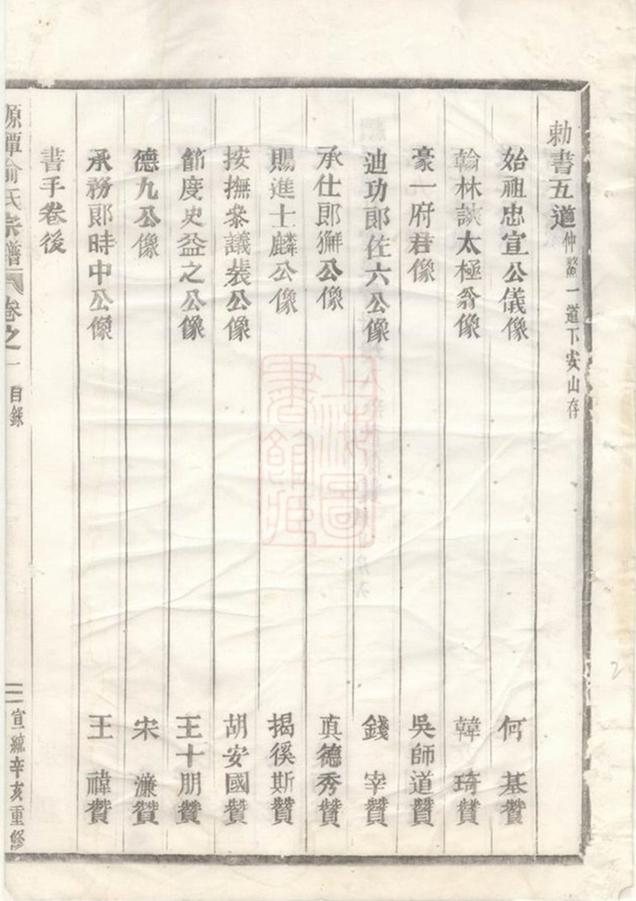 勅書五道 一道下安山存
始祖忠宣公儀像 何基贊
翰林談太極翁像 韓琦贊
豪一府君像 吳師道贊
迪功郎佐六公像 錢宰贊
承仕郎獬公像 真德秀贊
賜進士麟公像 揭傒斯贊
按撫參議裝公像 胡安國贊
節度史益之公像 王十朋贊
德九公像 宋濂贊
承務郎時中公像 王禕贊
書手卷後
源潭俞氏宗譜 卷之一 目錄 二 宣統辛亥重修
上海圖書館藏